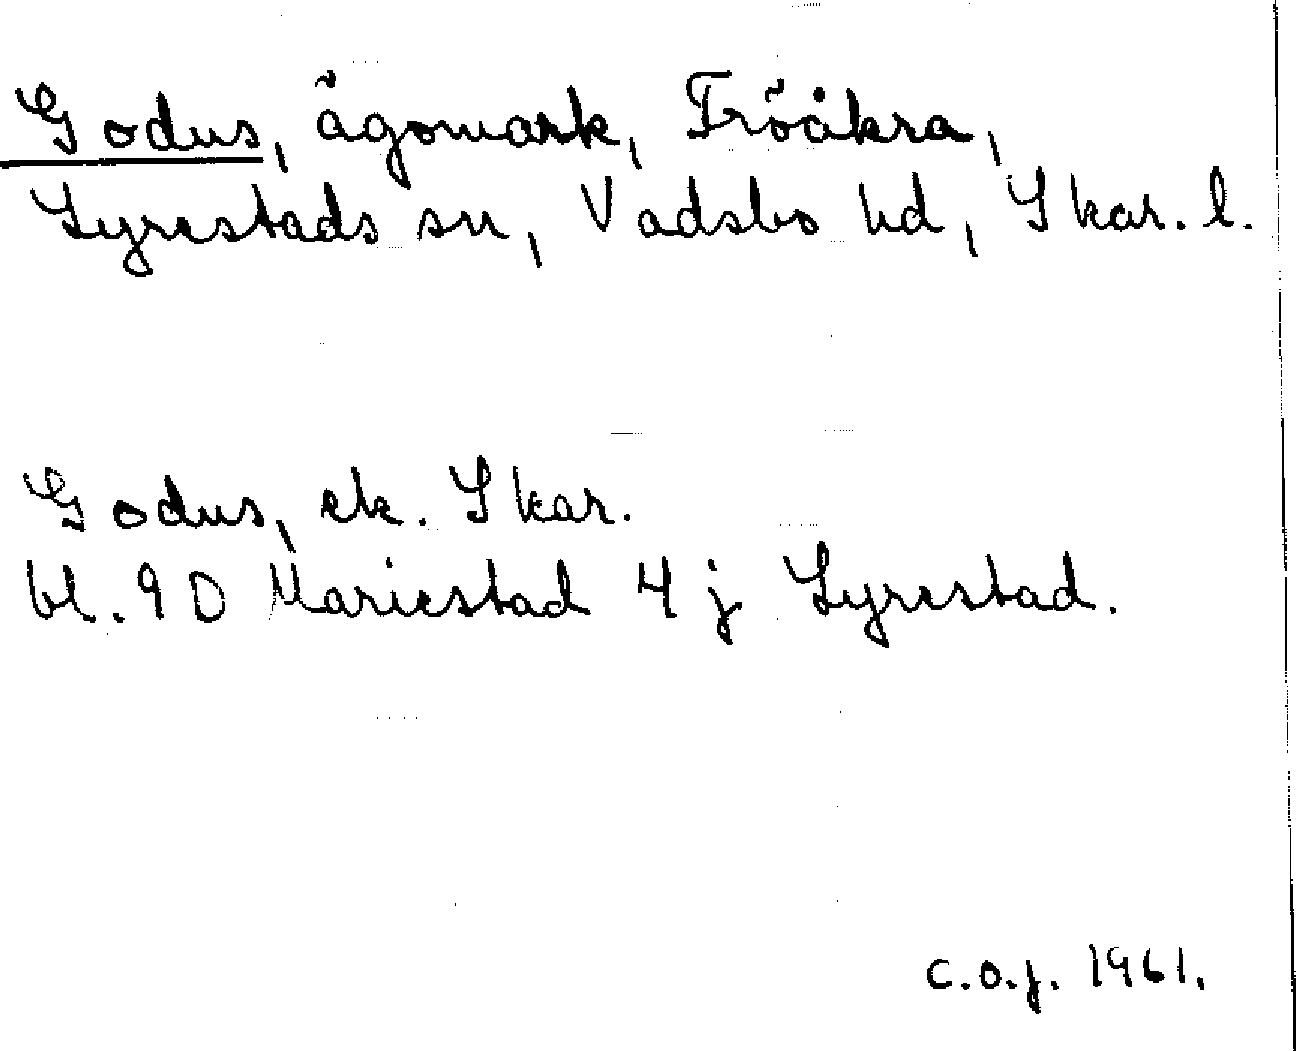 Godus, ägomark, Fröåkra,
Lyrestads sn, Vadsbo hd, Skar. l.
Godus, ek. Skar.
bl. 9 D Mariestad 4 j Lyrestad.
C.O.J. 1961.